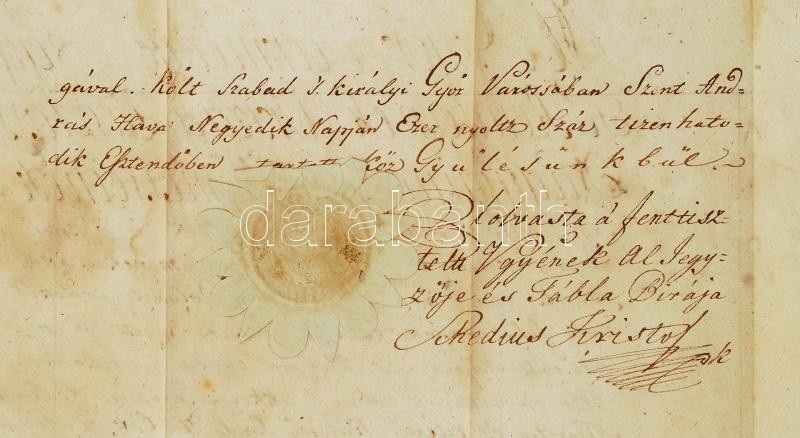 gával. Költ Szabad 's királyi Győr Várossában Szent And=
rás Hava Negyedik Napján Ezer nyoltz Száz tizenhato=
dik Esztendőben tartott köz Gyűlésünkbűl.
darabanth
olvasta á fenttisz=
telt Vgyének Al Jegy=
zője és Tábla Birája
Schedius Kristof